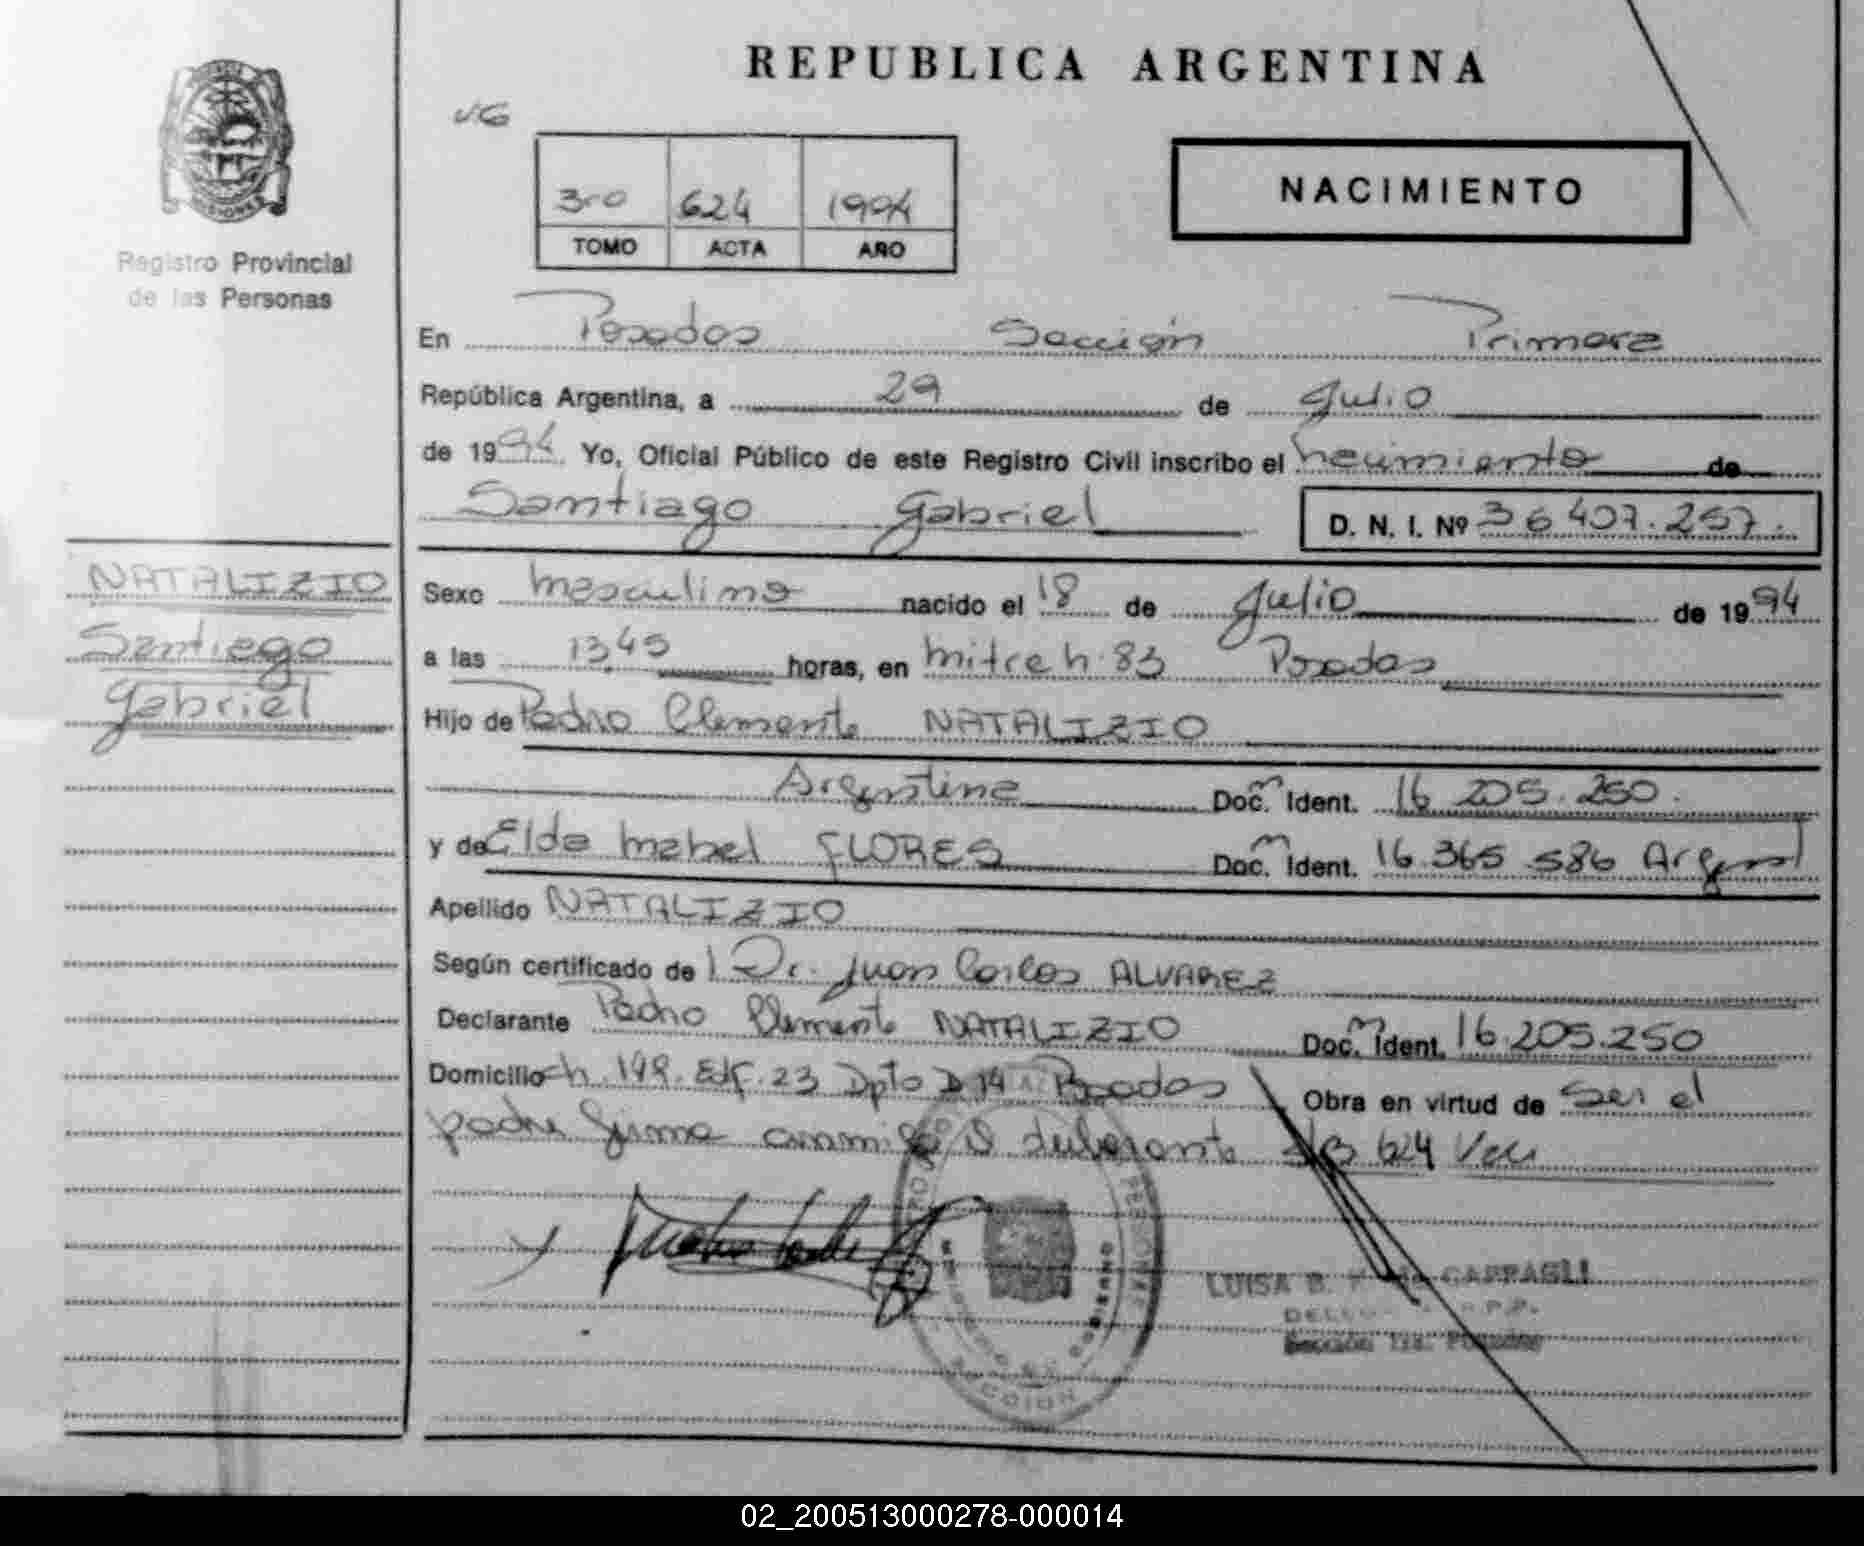 REPUBLICA ARGENTINA
NACIMIENTO
3ro 624 1994
TOMO ACTA AÑO
MISIONES
Registro Provincial
de las Personas
En Posadas Sección Primera
República Argentina, a 29 de Julio
de 1994. Yo, Oficial Público de este Registro Civil inscribo el nacimiento de
Santiago Gabriel D. N. I. Nº 36407.257.
NATALIZIO
Santiago
Gabriel
Sexo masculino nacido el 18 de Julio de 1994
a las 13,45 horas, en mitre h. 83 Posadas
Hijo de Pedro Clemente NATALIZIO
Argentina Doc. Ident. 16 205.250.
y de Elda Mabel FLORES Doc. Ident. 16.365 586 Argent
Apellido NATALIZIO
Según certificado de Dr. Juan Carlos ALVAREZ
Declarante Pedro Clemente NATALIZIO Doc. Ident. 16.205.250
Domicilio ch. 149. Edf. 23 Dpto D 14 Posadas Obra en virtud de ser el
padre firma conmigo el declarante 624 Vale
PERSONAS
GOBIERNO
LUISA B. CAPPAGLI
Sección 1ra. Posadas
02_200513000278-000014